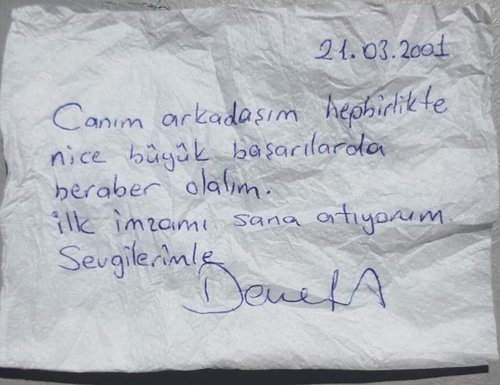 21.03.2001
Canım arkadaşım hepbirlikte
nice büyük başarılarda
beraber olalım.
ilk imzamı sana atıyorum.
Sevgilerimle